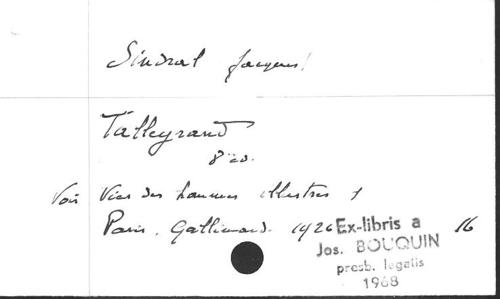 Sindral Jacques!
Talleyrand
8° éd.
Voir Vies des hommes illustres 1
Paris, Gallimard. 1926 16
Ex-libris a
Jos. BOUQUIN
presb. legatis
1968